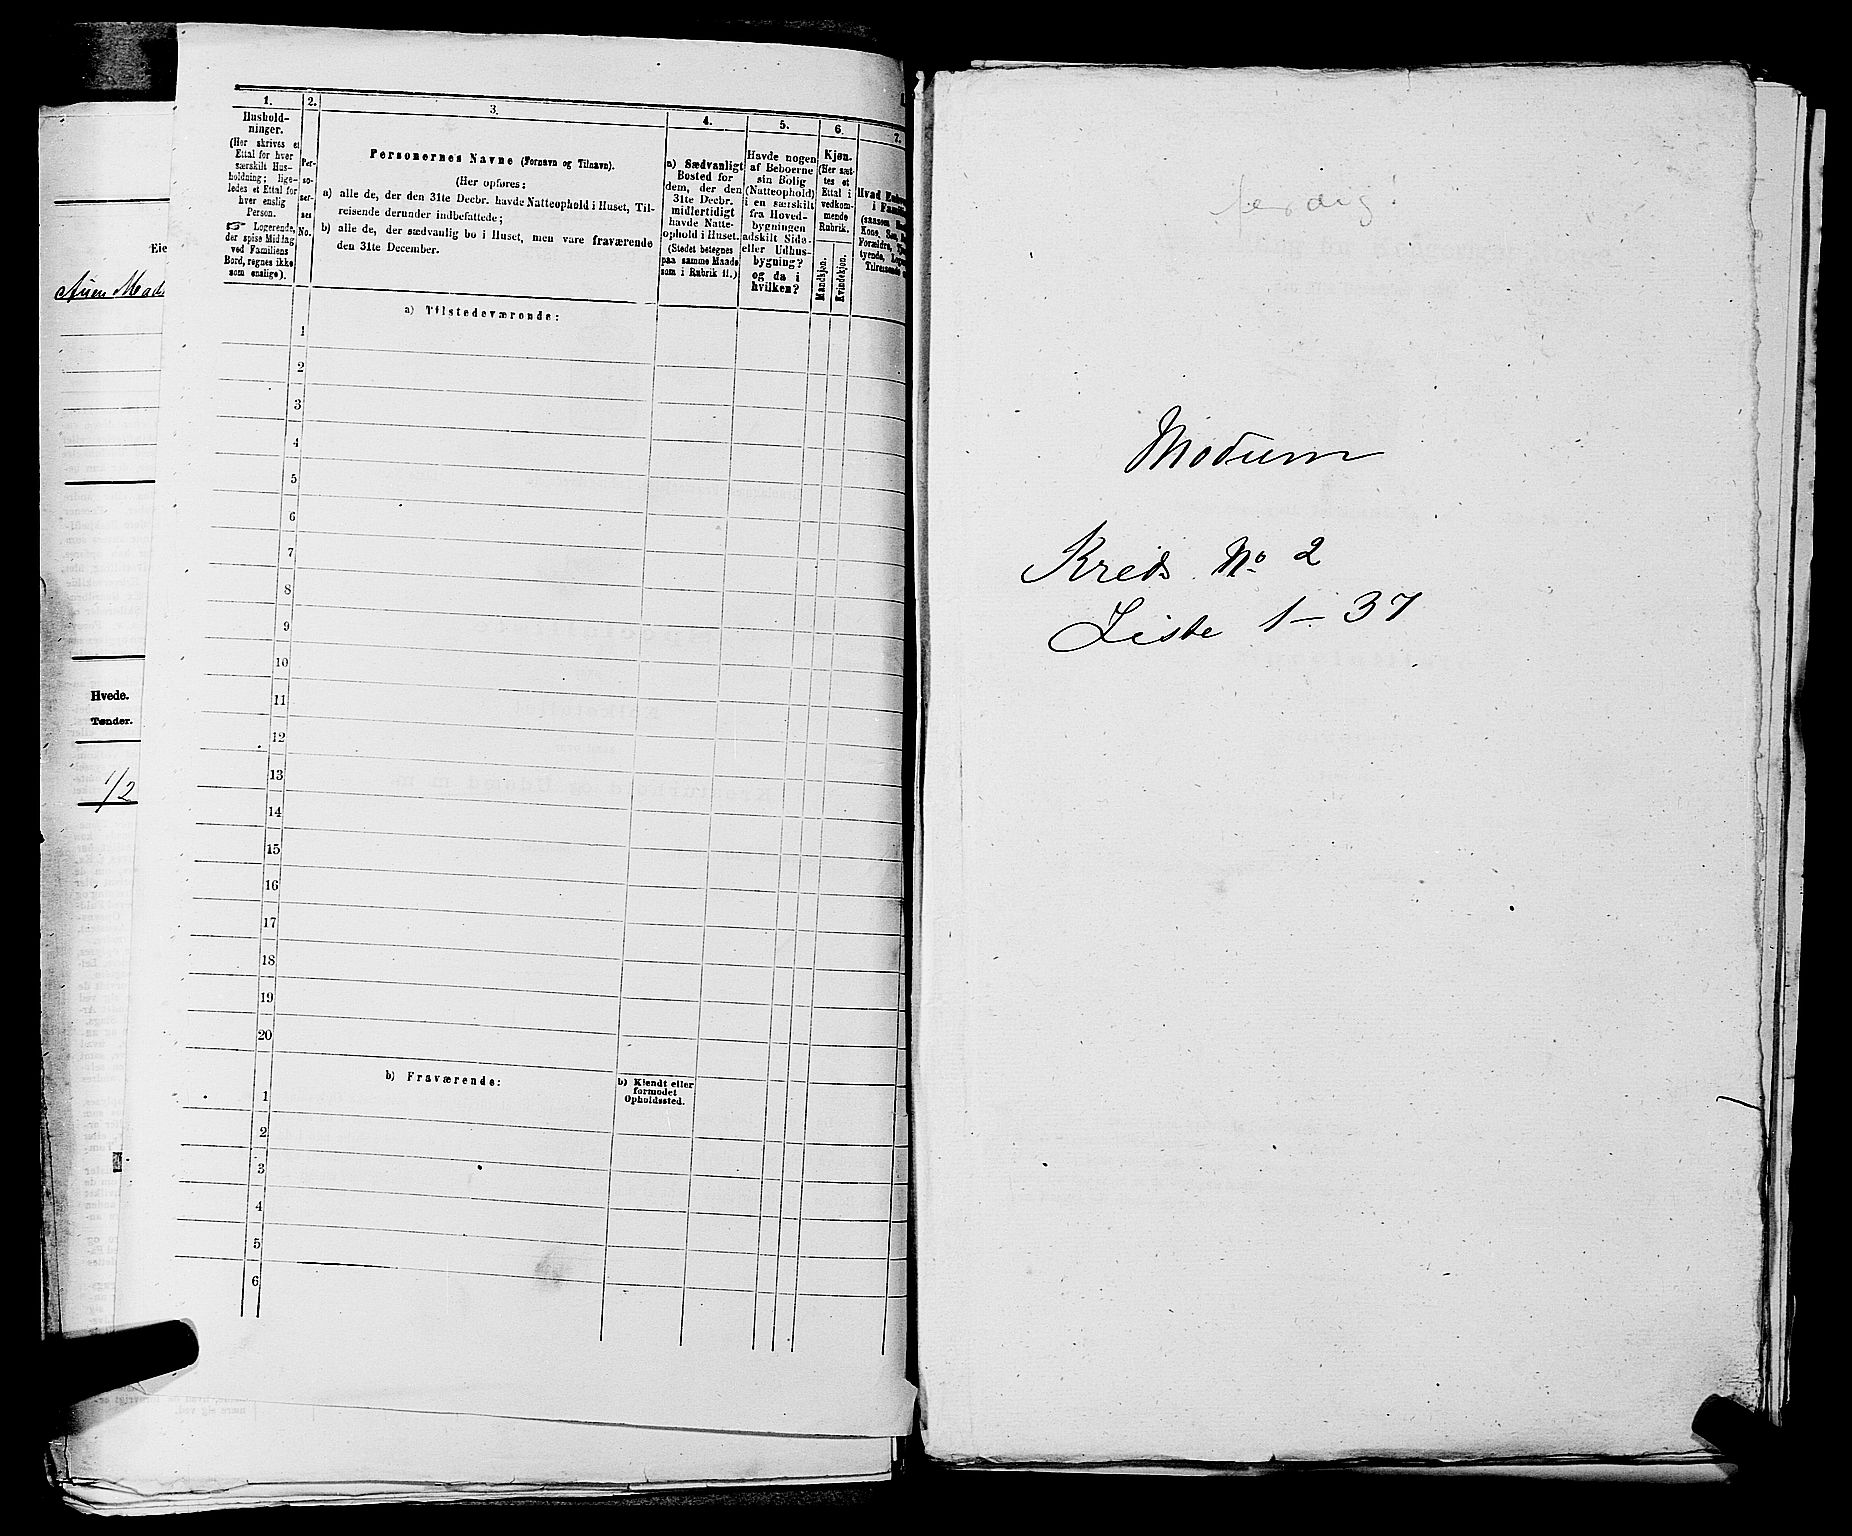 Eie
Hvede.
Tønder.
1/2
1.
Hushold-
ninger.
(Her skrives et
Ettal for hver
særskilt Hus-
holdning; lige-
ledes et Ettal for
hver enslig
Person.
☞ Logerende,
der spise Middag
ved Familiens
Bord, regnes ikke
som enslige).
2.
Per-
so-
ner-
nes
No.
3.
Personernes Navne (Fornavn og Tilnavn).
(Her opføres:
a) alle de, der den 31te Decbr. havde Natteophold i Huset, Til-
reisende derunder indbefattede;
b) alle de, der sædvanlig bo i Huset, men vare fraværende
den 31te December.
4.
a) Sædvanligt
Bosted for
dem, der den
31te Decbr.
midlertidigt
havde Natte-
ophold i Huset.
(Stedet betegnes
paa samme Maade
som i Rubrik 11.)
5.
Havde nogen
af Beboerne
sin Bolig
(Natteophold)
i en særskilt
fra Hoved-
bygningen
adskilt Side-
eller Udhus-
bygning?
og da i
hvilken?
6.
Kjøn.
(Her sæt-
tes et
Ettal i
vedkom-
mende
Rubrik.
Mandkjøn.
Kvindekjøn.
7.
Hvad Enhver
i Famili
(saasom
Kone, Søn,
Forældre,
tyende,
Tilreisende
a) Tilstedeværende:
1
2
3
4
5
6
7
8
9
10
11
12
13
14
15
16
17
18
19
20
b) Fraværende:
b) Kjendt eller
formodet
Opholdssted.
1
2
3
4
5
6
ferdig!
Modum
Kreds No 2
Liste 1 – 37